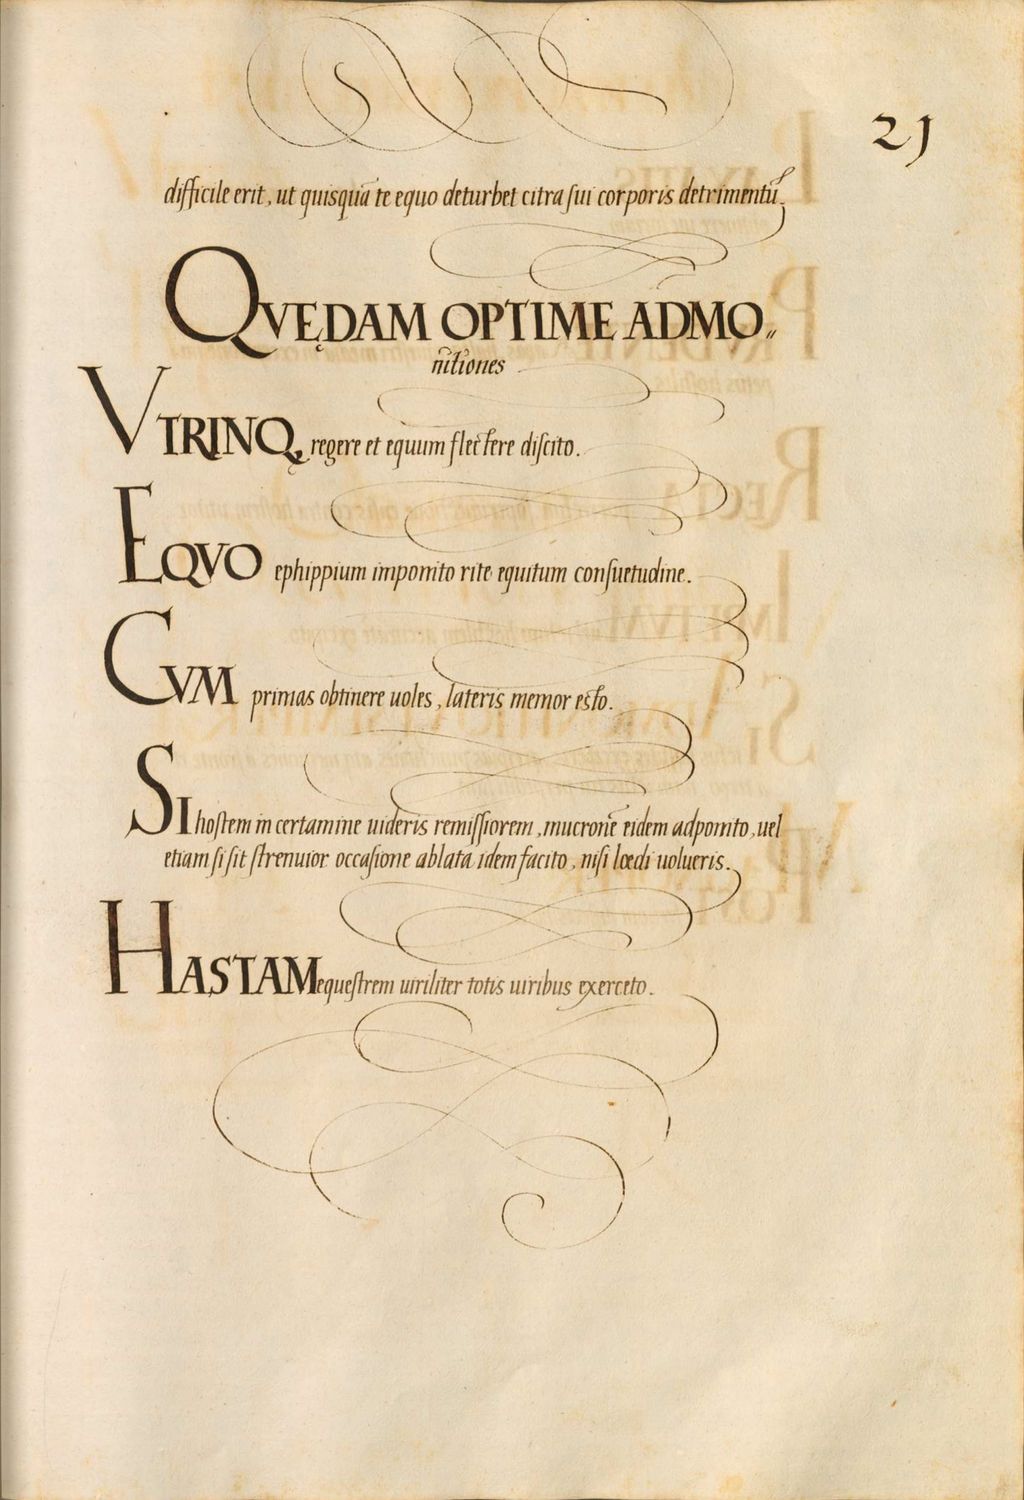 21
difficile erit, ut quisquā te equo deturbet citra sui corporis detrimentū.
QVĘDAM OPTIME ADMO〃
nitiones
VTRINQ, regere et equum flectere discito.
EQVO ephippium imponito rite equitum consuetudine.
CVM primas obtinere uoles, lateris memor esto.
SI hostem in certamine uideris remissiorem, mucronē eidem adponito, uel
etiam si sit strenuior occasione ablata idem facito, nisi lœdi uolueris.
HASTAM equestrem uiriliter totis uiribus exerceto.